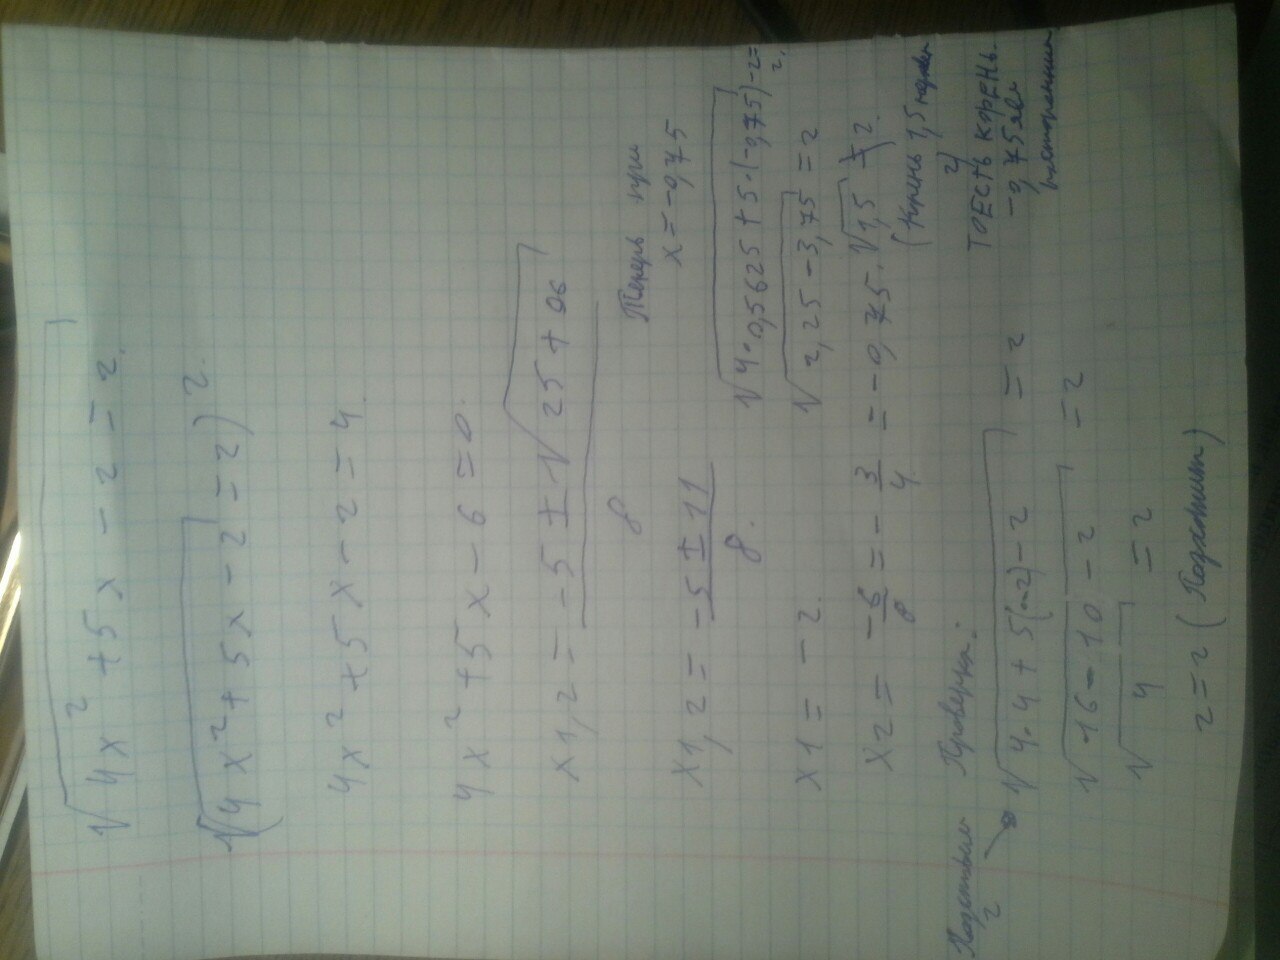 √4x² + 5x - 2 = 2.
(√4x² + 5x - 2 = 2)²
4x² + 5x - 2 = 4.
4x² + 5x - 6 = 0.
x1,2 = -5 ± √25 + 96
8
x1,2 = -5 ± 11
8.
x1 = -2.
x2 = -6/8 = -3/4 = -0,75.
Проверка:
2
√4·4 + 5(-2) - 2 = 2
√16 - 10 - 2 = 2
√4 = 2
2 = 2 (Подходит)
Теперь при
x = -0,75
√4·0,5625 + 5·(-0,75) - 2 =
2.
√2,25 - 3,75 = 2
√1,5 ≠ 2.
(Корень 1,5
2)
ТОЕСТЬ КОРЕНЬ.
-0,75